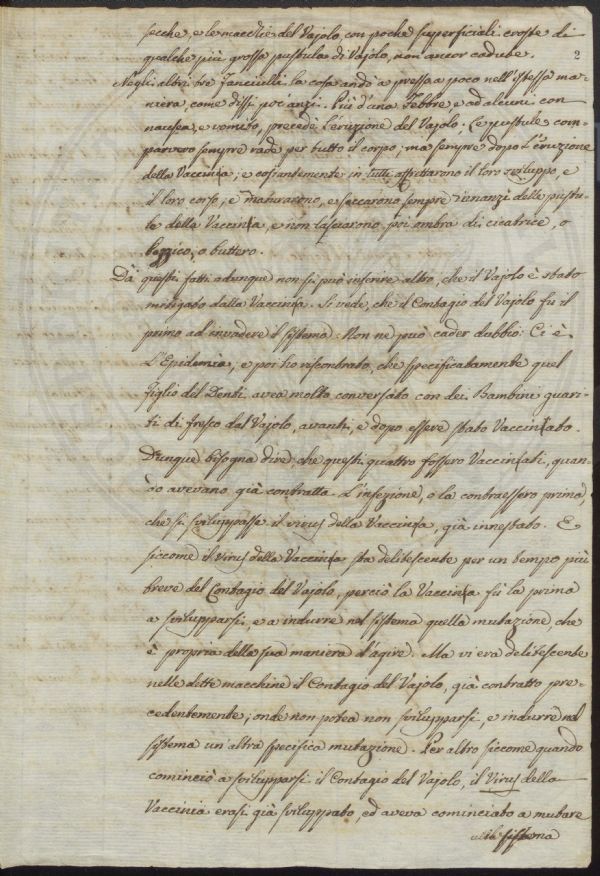 secche, e le macchie del Vajolo, con poche superficiali croste di
2
qualche più grossa pustula di Vajolo, non ancor cadute.
Negli altri tre fanciulli la cosa andò a pressa a poco nell'istessa ma-
niera, come dissi poc'anzi. Più d'una Febbre, e ad alcuni con
nausea, e vomito, precedè l'eruzione del Vajolo. Le pustule com-
parvero sempre rade per tutto il corpo; ma sempre dopo l'eruzione
della Vaccinia; e costantemente in tutti affrettarono il loro sviluppo, e
il loro corso, e maturarono, e seccarono sempre innanzi delle pustu-
le della Vaccinia, e non lasciarono poi ombra di cicatrice, o
o buttero.
Dà questi fatti adunque non si può inferire altro, che il Vajolo è stato
mitigato dalla Vaccinia. Si vede, che il Contagio del Vajolo fu il
primo ad invadere il sistema. Non ne può cader dubbio. Ci è
l'Epidemia, e poi ho riscontrato, che specificatamente quel
figlio del Denti avea molto conversato con dei Bambini guari-
ti di fresco dal Vajolo, avanti, e dopo essere stato Vaccinato.
Dunque bisogna dire, che questi quattro fossero Vaccinati, quan-
do avevano già contratta l'infezione, o la contraessero prima,
che si sviluppasse il virus della Vaccinia, già innestato. E
siccome il Virus della Vaccinia sta delitescente per un tempo più
breve del Contagio del Vajolo, perciò la Vaccinia fù la prima
a svilupparsi, e a indurre nel sistema quella mutazione, che
è propria della sua maniera d'agire. Ma vi era delitescente
nelle dette macchine il Contagio del Vajolo, già contratto pre-
cedentemente; onde non potea non svilupparsi, e indurre nel
sistema un'altra specifica mutazione. Per altro siccome quando
cominciò a svilupparsi il Contagio del Vajolo, il Virus della
Vaccinia erasi già sviluppato, ed aveva cominciato a mutare
il sistema